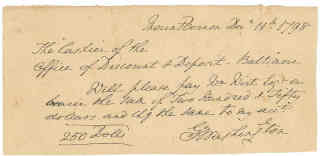 Mount Vernon Decr 11th 1798
The Cashier of the
Office of Discount & Deposit - Baltimore
Will please pay
the sum of two Hundred & fifty
dollars and chg the same to my acct
250 Dolls
Go Washington